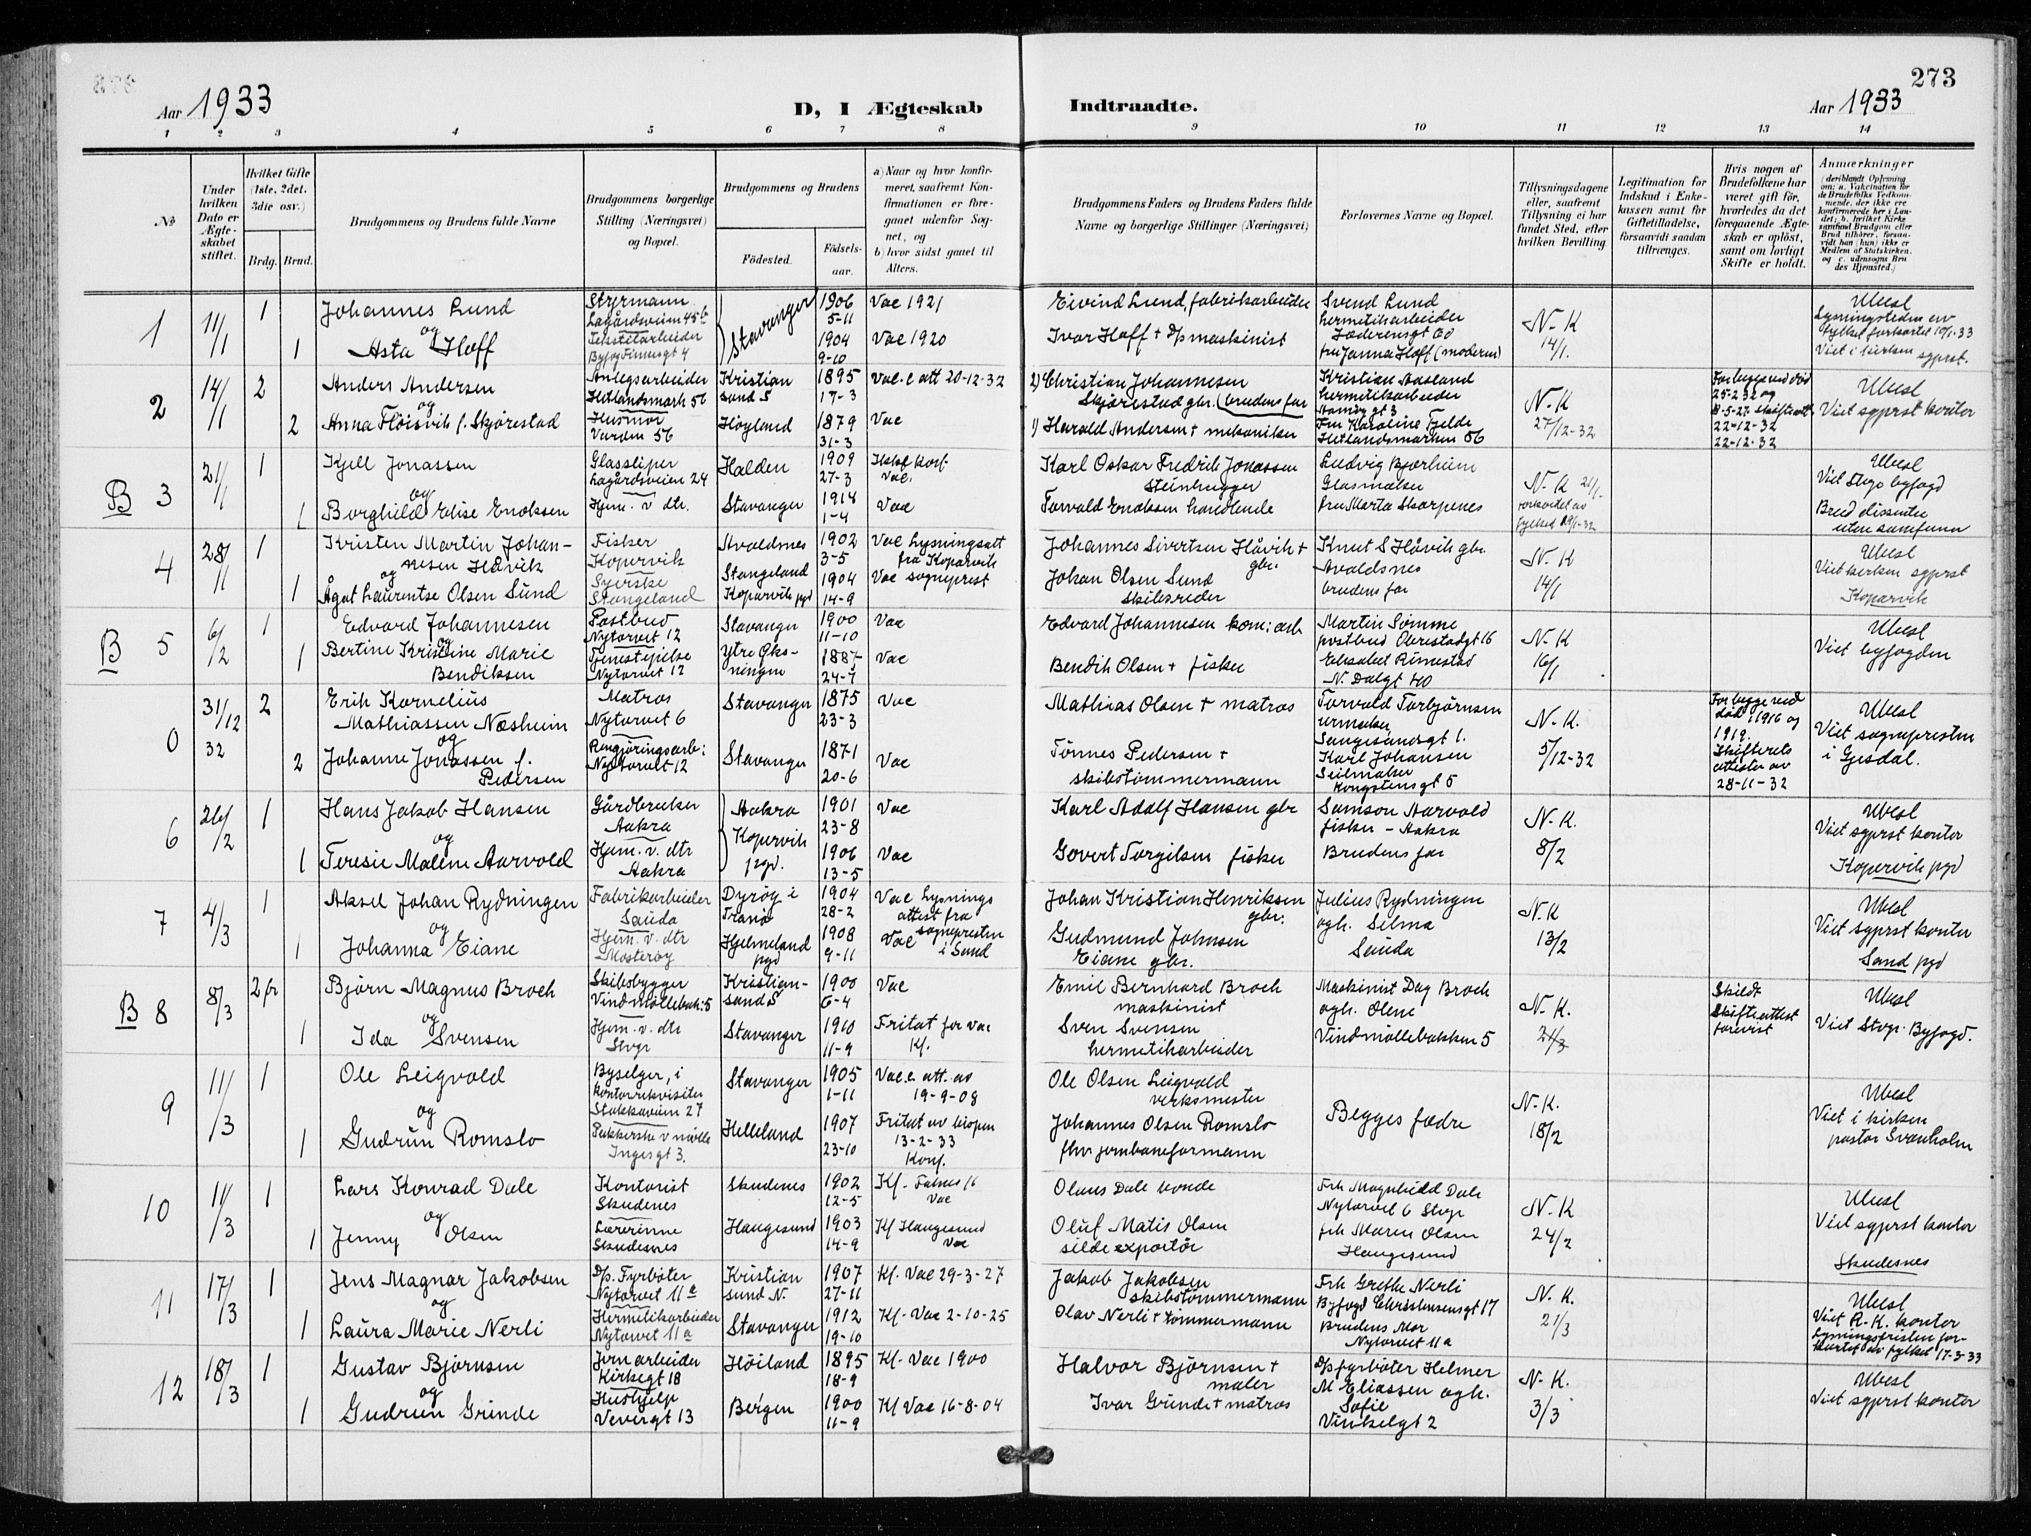 273
Aar 1933
D, I Ægteskab
Indtraadte.
Aar 1933
1 2 3 4 5 6 7 8 9 10 11 12 13 14
№
Under hvilken Dato er Ægteskabet stiftet.
Hvilket Gifte (1ste, 2det, 3die osv.)
Brdg. Brud.
Brudgommens og Brudens fulde Navne
Brudgommens borgerlige Stilling (Næringsvei) og Bopæl.
Brudgommens og Brudens
Fødested.
Fødselsaar.
a) Naar og hvor konfirmeret, saafremt Konfirmationen er foregaaet udenfor Sognet, og
b) hvor sidst gaaet til Alters.
Brudgommens Faders og Brudens Faders fulde Navne og borgerlige Stillinger (Næringsvei)
Forlovernes Navne og Bopæl.
Tillysningsdagene eller, saafremt Tillysning ei har fundet Sted, efter hvilken Bevilling.
Legitimation for Indskud i Enkekassen samt for Giftetilladelse, forsaavidt saadan tiltrænges.
Hvis nogen af Brudefolkene har været gift før, hvorledes da det foregaaende Ægteskab er opløst, samt om lovligt Skifte er holdt.
Anmærkninger
1 11/1 1 Johannes Lund
og
1 Asta Hoff
Styrmann
Lagårdsveien 45b
Stavanger
1906
5-11
1904
9-10
Vac 1921
Vac 1920
Eivind Lund, fabrikarbeider
Ivar Hoff + D/p maskinist
Svend Lund
hermetikarbeider
fru Janna Hoff (moderen)
N-K
14/1.
Ubesl
Viet i kirken sgprst.
2 14/1 2 Anders Andersen
og
2 Anna Fløisvik f. Skjørestad
Anlegsarbeider
Hetlandsmark 56
Husmor
Varden 56
Kristian
sund S
Høyland
1895
17-3
1879
31-3
Vac. e att 20-12-32
Vac
2) Christian Johannesen
Skjørestad gbr. (brudens far
1) Harald Andersen + mekaniker
Kristian Aasland
hermetikarbeider
Fru Karoline Fjelde
Hetlandsmarken 56
N-K
27/12-32
22-12-32
22-12-32
Ubesl
Viet sgprst kontor
B 3 21/1 1 Kjell Jonassen
og
1 Borghild Elise Enoksen
Glassliper
Lagårdsveien 24
Hjem. v dtr.
Halden
Stavanger
1909
27-3
1914
1-4
Vac.
Vac
Karl Oskar Fredrik Jonassen
steinhugger
Torvald Enoksen handlende
Ludvig Bjørheim
Glasmester
fru Marta Skorpenes
N-K 21/1-
Ubesl
Viet Stvgr byfogd
Brud dissenter
uten samfunn
4 28/1 1 Kristen Martin Johan-
nesen Håvik
og
1 Ågot Laurentse Olsen Sund
Fisker
Kopervik
Syerske
Stangeland
Avaldsnes
Stangeland
Kopervik pgd
1902
3-5
1904
14-9
Vac Lysningsatt
fra Kopervik
Vac sogneprest
Johannes Sivertsen Håvik +
gbr.
Johan Olsen Sund
skibsreder
Knut S Håvik gbr
Avaldsnes
brudens far
N-K
14/1
Ubesl
Viet kirken sgprst
Kopervik
B 5 6/2 1 Edvard Johannesen
og
1 Bertine Kristine Marie
Bendiksen
Postbud
Nytorvet 12
Nytorvet 12
Stavanger
Ytre Øks-
ningen
1900
11-10
1887
24-1
Vac
Vac
Edvard Johannesen kom: arb
Bendik Olsen + fisker
Martin Sømme
postbud
Elisabet Rimestad
N. Dalgt 40
N-K
16/1
Ubesl
Viet byfogden
0 31/12 32 2 Erik Kornelius
Mathiassen Næsheim
og
2 Johanne Jonassen f.
Pedersen
Matros
Nytorvet 6
Rengjøringsarb:
Nytorvet 12
Stavanger
Stavanger
1875
23-3
1871
20-6
Vac
Vac
Mathias Olsen + matros
Tønnes Pedersen +
skibstømmermann
Torvald Torbjørnsen
urmaker
Karl Johansen
Seilmaker
Kongstensgt 5
N-K.
5/12-32
For begge ved
død i 1916 og
1919.
Skifterets
attester av
28-11-32
Ubesl
Viet sognepresten
i Gjesdal.
6 26/2 1 Hans Jakob Hansen
og
1 Teresie Malene Aarvold
Gårdbruker
Aakra
Hjem. v. dtr
Aakra
Aakra
Kopervik
pgd.
1901
23-8
1906
13-5
Vac
Vac
Karl Adolf Hansen gbr
Govert Torgilsen fisker
Samson Aarvold
fisker - Aakra
Brudens far
N-K.
8/2
Ubesl
Viet sgprst kontor
Kopervik pgd
7 4/3 1 Aksel Johan Rydningen
og
1 Johanna Eiane
Fabrikarbeider
Sauda
Hjem. v. dtr
Mosterøy
Dyrøy i
Tranø
Hjelmeland
pgd
1904
28-2
1908
9-11
Vac Lysnings
attest fra
sognepresten
i Sand
Vac
Johan Kristian Henriksen
gbr.
Gudmund Johnsen
Eiane gbr.
Julius Rydningen
ogh. Selma
Sauda
N-K
13/2
Ubesl
Viet sgprst kontor
Sand pgd
B 8 8/3 2 fr Bjørn Magnus Broch
og
1 Ida Svensen
Skibsbygger
Vindmøllebak: 5
Hjem. v. dtr
Stvgr
Kristian-
sand S
Stavanger
1900
6-4
1910
11-9
Vac
Fritat for vac
Kf.
Emil Bernhard Broch
maskinist
Sven Svensen
hermetikarbeider
Maskinist Dag Broch
ogh. Olene
Vindmøllebakken 5
N-K.
21/3
Skildt
Skifteattest
forevist
Ubesl
Viet Stvgr. Byfogd.
9 11/3 1 Ole Leigvold
og
1 Gudrun Romslo
Byselger, i
kontorrekvisiter
Stokkaveien 27
Pakkerske v mølle
Ingesgt 3.
Stavanger
Helleland
1905
1-11
1907
23-10
Vac. e. att. av
19-9-08
Fritat av biopen
13-2-33
Konf.
Ole Olsen Leigvold
verksmester
Johannes Olsen Romslo
fhv jernbaneformann
Begges fædre
N-K.
18/2
Ubesl
Viet i kirken
pastor Svanholm
10 11/3 1 Lars Konrad Dale
og
1 Jenny Olsen
Kontorist
Skudenes
Lærerinne
Skudesnes
Skudenes
Haugesund
1902
12-5
1903
14-9
Vac
Kf Haugesund
Vac
Olaus Dale bonde
Oluf Matis Olsen
sildeexportør
Frk Magnhild Dale
Nytorvet 6 Stvgr
frk Maren Olsen
Haugesund
N-K
24/2
Ubesl
Viet sgprst kontor
Skudesnes
11 17/3 1 Jens Magnar Jakobsen
og
1 Laura Marie Nerli
D/p. Fyrbøter
Nytorvet 11a
Hermetikarbeider
Nytorvet 11a
Kristian
sund N.
Stavanger
1907
27-11
1912
19-10
Kf. Vac 29-3-27
Kf- Vac 2-10-25
Jakob Jakobsen
skibstømmermann
Olav Nerli + tømmermann
Frk Grethe Nerli
Byfogd Christensensgt 17
Brudens Mor
Nytorvet 11a
N-K.
21/3
Ubesl
Viet R.-K. kontor
Lysningsfristen for-
kortet av fylket 17-3-33
12 18/3 1 Gustav Bjørnsen
og
1 Gudrun Grinde
Jernarbeider
Kirkegt 18
Hushjelp
Vevergt 13
Høiland
Bergen
1895
18-9
1900
11-9
Kf- Vac 1900
Kf Vac 16-8-04
Halvor Bjørnsen +
maler
Ivar Grinde + matros
D/p fyrbøter Helmer
M Eliassen ogh.
Sofie
Vinkelgt 2
N-K.
3/3
Ubesl
Viet sgprst kontor